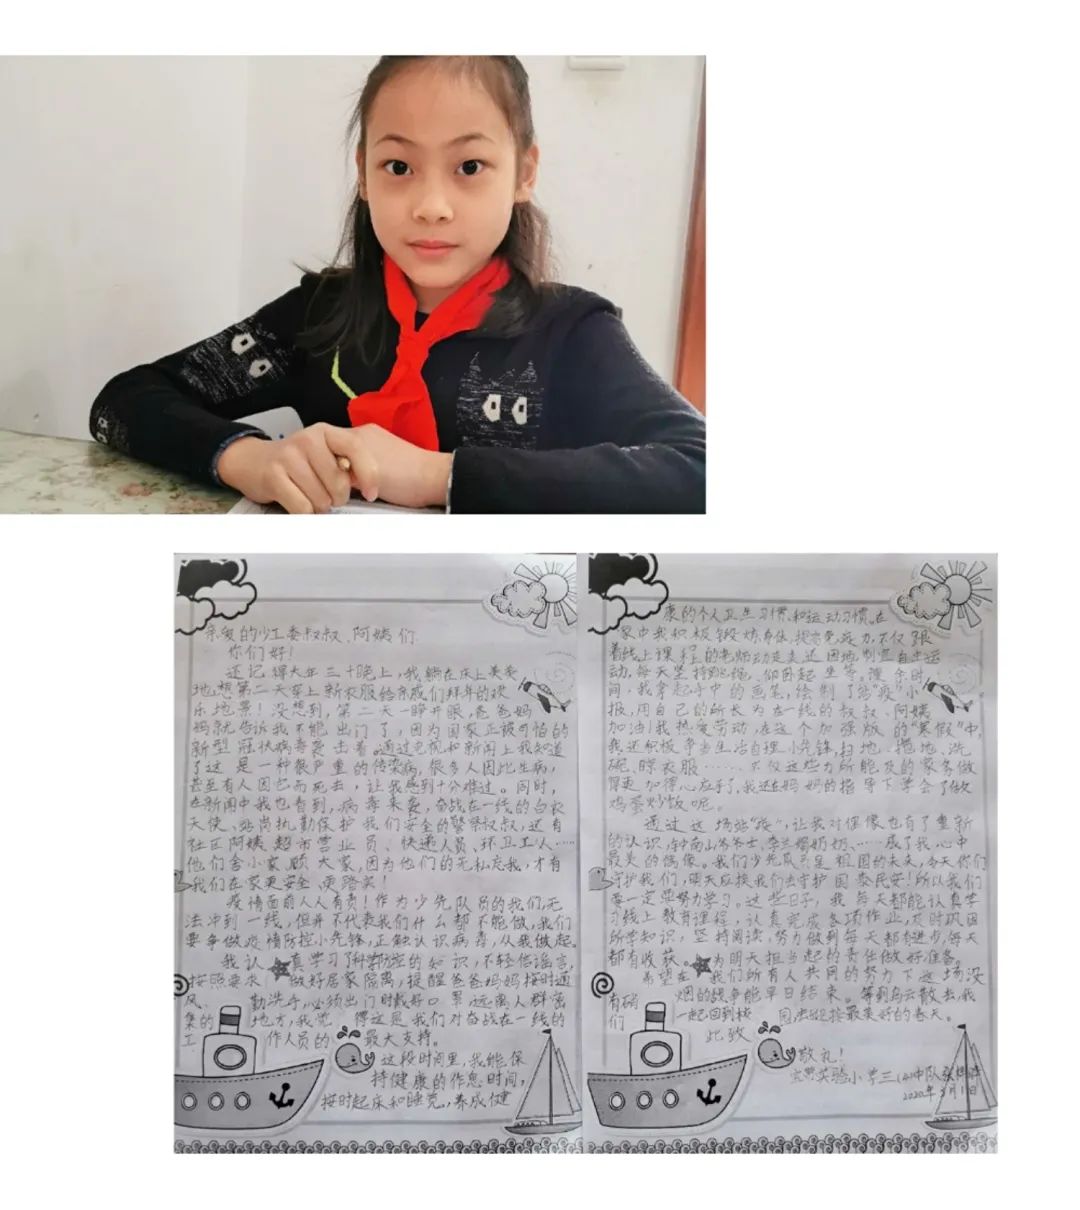 亲爱的少工委叔叔、阿姨们:
你们好!
还记得大年三十晚上,我躺在床上美美
地想第二天穿上新衣服给亲戚们拜年的欢
乐地景!没想到,第二天一睁开眼,爸爸妈
妈就告诉我不能出门了,因为国家正被可怕的
新型冠状病毒袭击着。通过电视和新闻上我知道
了这是一种很严重的传染病,很多人因此生病,
甚至有人因它而死去,让我感到十分难过。同时,
在新闻中我也看到,病毒来袭,奋战在一线的白衣
天使、站岗执勤保护我们安全的警察叔叔,还有
社区阿姨、超市营业员、快递人员、环卫工人……
他们舍小家顾大家,因为他们的无私充我,才有
我们在家更安全、更踏实!
疫情面前人人有责!作为少先队员的我们,无
法冲到一线,但并不代表我们什么都不能做,我们
要争做疫情防控小先锋,正触认识病毒,从我做起。
我认真学习了科学防控的知识,不轻信谣言,
按照要求做好居家隔离,提醒爸爸妈妈按时通
风、勤洗手,必须出门时戴好口罩远离人群密
集的地方,我觉得这是我们对奋战在一线的
工作人员的最大支持。
这段时间里,我能保
持健康的作息时间,
按时起床和睡觉,养成健
康的个人卫生习惯和运动习惯。在
家中我积极锻炼身体,提高免疫力,不仅跟
着线上课程的老师动走走还因地制宜自主运
动,每天坚持跳绳、仰卧起坐等。课余时
间,我拿起手中的画笔,绘制了站“疫”小
报,用自己的所长为在一线的叔叔、阿姨
加油!我热爱劳动,在这个加强版的“寒假”中,
我还积极争当生活自理小先锋,扫地、擦地、洗
碗、晾衣服……不仅这些力所能及的家务做
得更加得心应手了,我还在妈妈的指导下学会了做
鸡蛋炒饭呢。
通过这场站“疫”,让我对偶像也有了重新
的认识,钟南山爷爷、李兰娟奶奶……成了我心中
最美的偶像。我们少先队员是祖国的未来,今天你们
守护我们,明天应换我们去守护国泰民安!所以我们
要一定要努力学习。这些日子,我每天都能认真学
习线上教育课程,认真完成各项作业,及时巩固
所学知识,坚持阅读,努力做到每天都有进步,每天
都有收获。为明天担当起的责任做好准备。
希望在我们所有人共同的努力下这场没
有硝烟的战争能早日结束。等到乌云散去,我
们一起回到校园,去迎接最美好的春天。
此致
敬礼!
实验小学三(4)中队
2020年3月1日